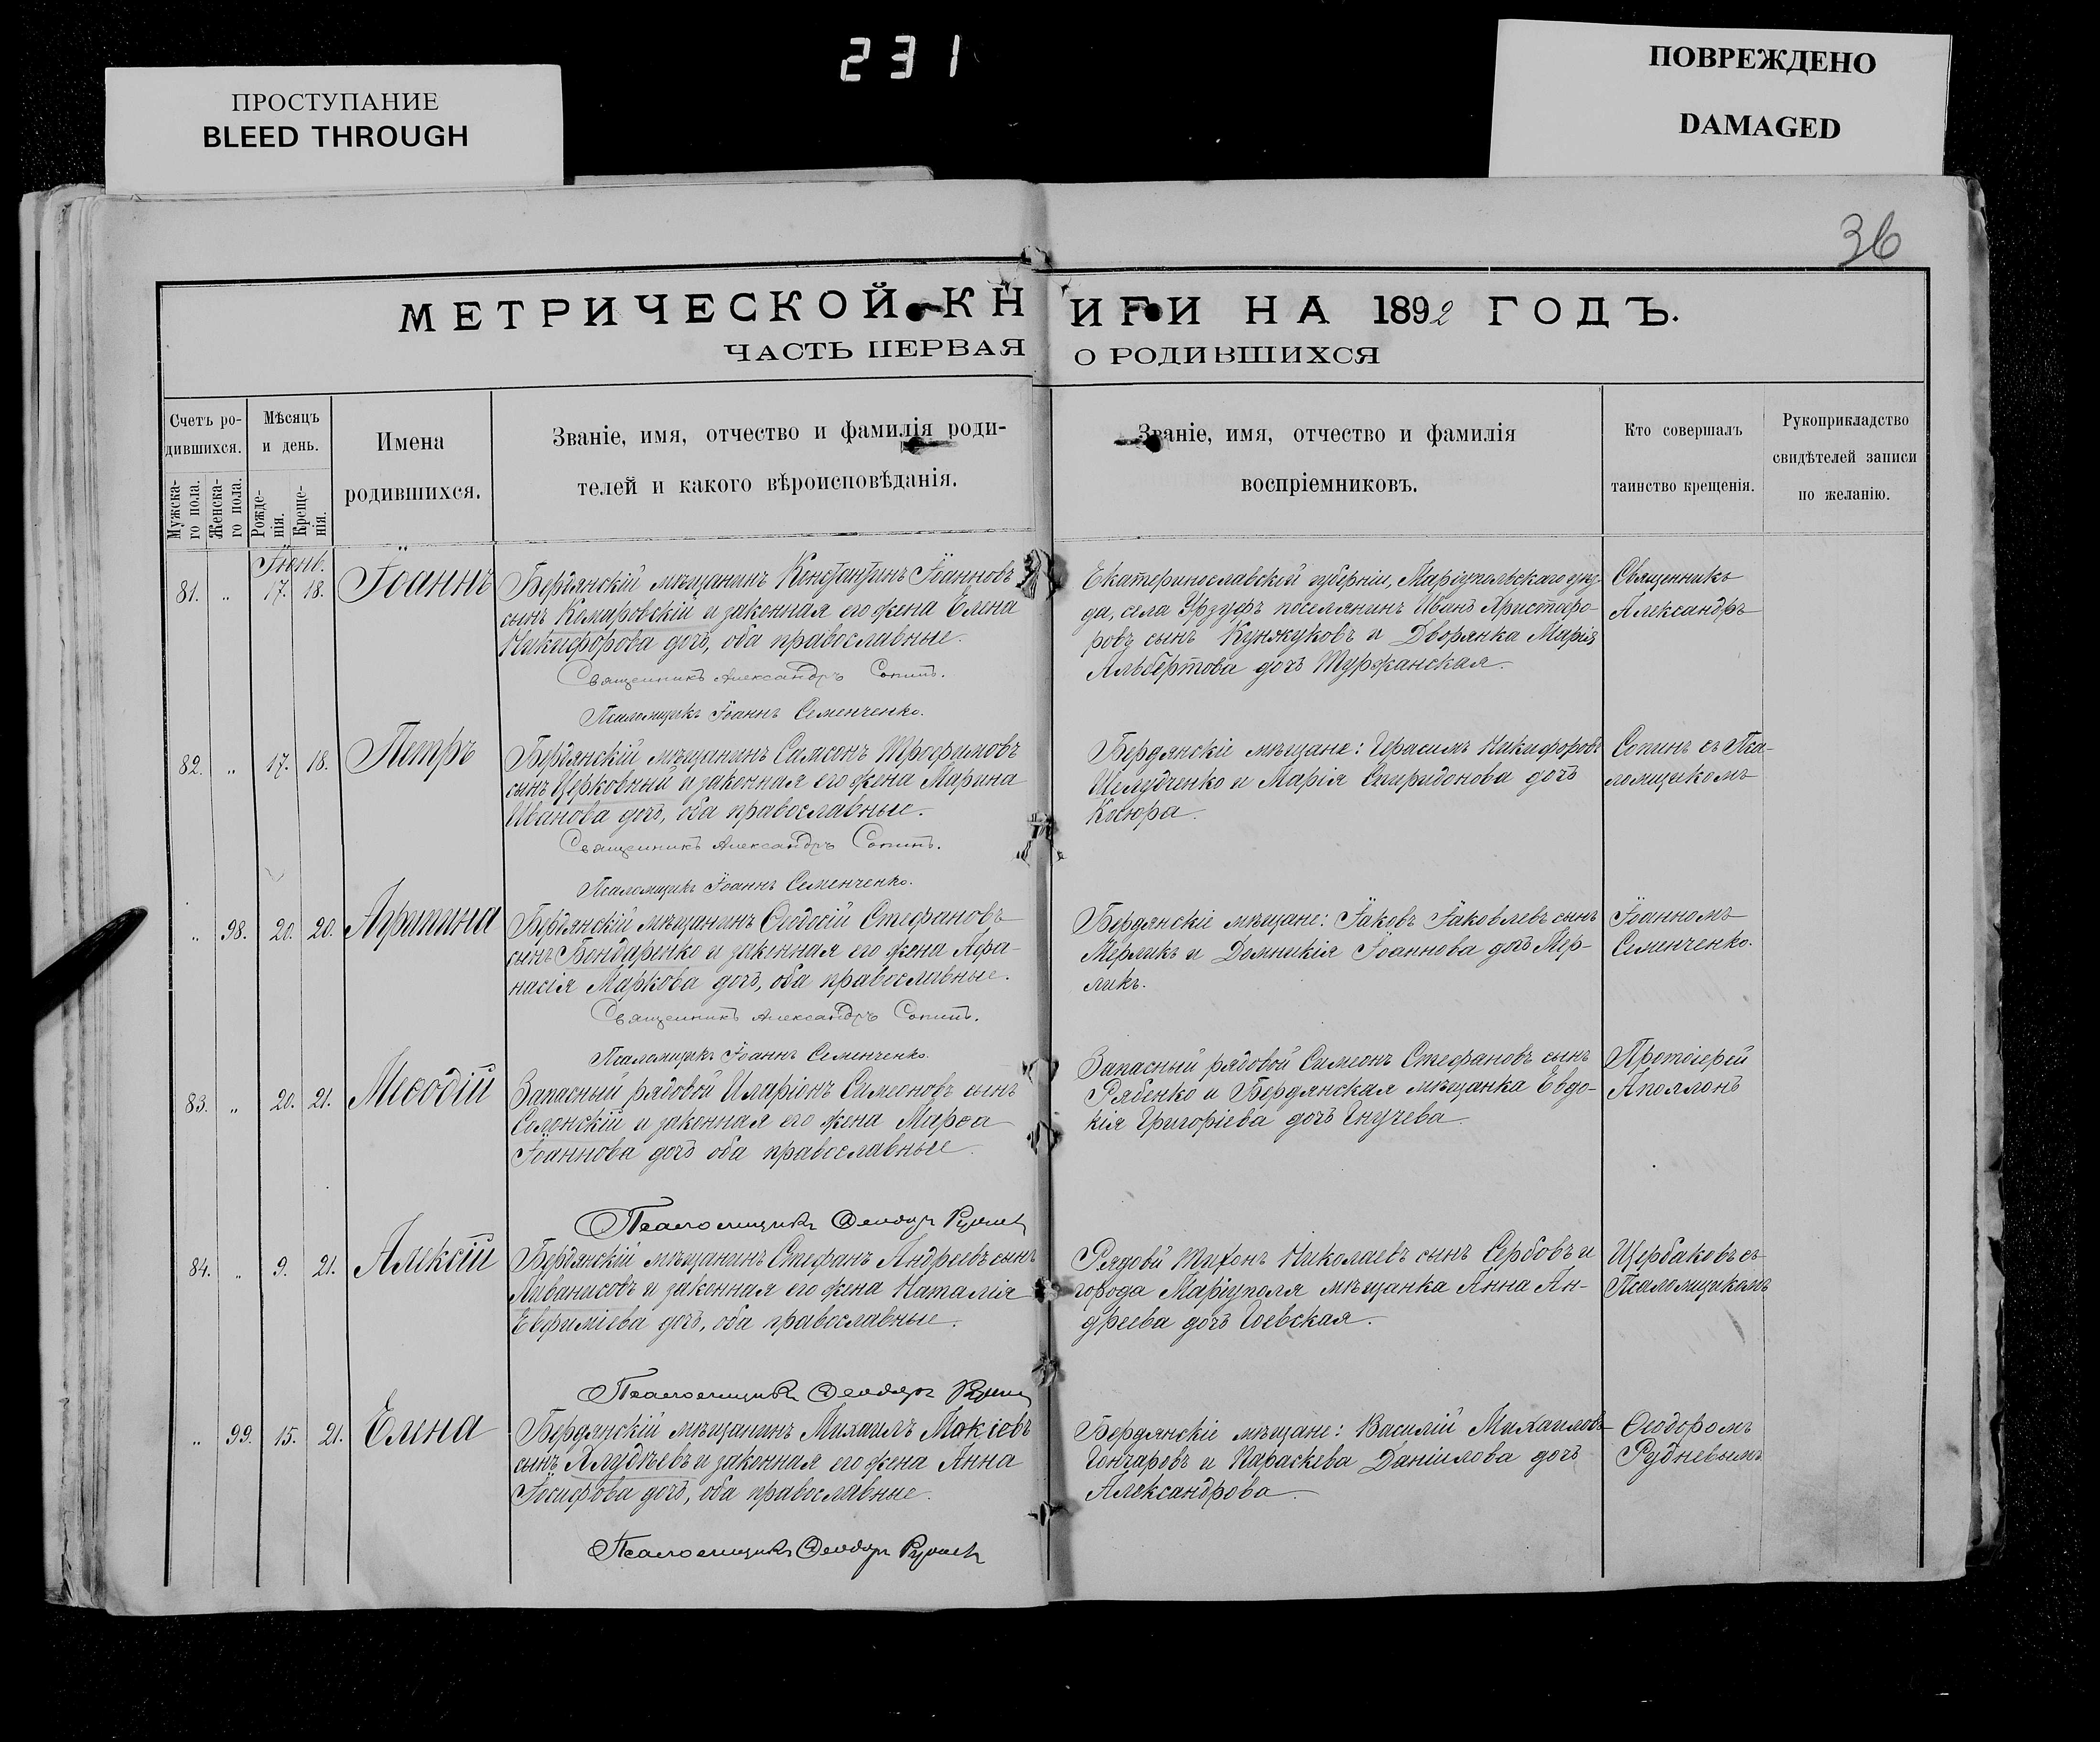 231
ПРОСТУПАНИЕ
BLEED THROUGH
ПОВРЕЖДЕНО
DAMAGED
36
МЕТРИЧЕСКОЙ КНИГИ НА 1892 ГОДЪ.
ЧАСТЬ ПЕРВАЯ О РОДИВШИХСЯ
Счетъ ро-
дившихся.
Мужска-
го пола.
Женска-
го пола.
Мѣсяцъ
и день.
Рожде-
нія.
Креще-
нія.
Имена
родившихся.
Званіе, имя, отчество и фамилія роди-
телей и какого вѣроисповѣданія.
Званіе, имя, отчество и фамилія
воспріемниковъ.
Кто совершалъ
таинство крещенія.
Рукоприкладство
свидѣтелей записи
по желанію.
Іюнь.
81. „ 17. 18. Іоаннъ
Бердянскій мѣщанинъ Константинъ Іоанновъ
сынъ Комаровскій и законная его жена Елена
Никифорова дочь, оба православные.
Священникъ Александръ Сопинъ.
Псаломщикъ Іоаннъ Семенченко.
Екатеринославской губерніи, Маріупольскаго уѣз-
да, села Урзуфъ поселянинъ Иванъ Христофо-
ровъ сынъ Кунжуковъ и Дворянка Марія
Альбертова дочь Туржанская.
Священникъ
Александръ
82. „ 17. 18. Петръ
Бердянскій мѣщанинъ Самсонъ Трофимовъ
сынъ Церковный и законная его жена Марина
Иванова дочь, оба православные.
Священникъ Александръ Сопинъ.
Псаломщикъ Іоаннъ Семенченко.
Бердянскіе мѣщане: Герасимъ Никифоровъ
Шелудченко и Марія Спиридонова дочь
Косюра.
Сопинъ съ Пса-
ломщикомъ
„ 98. 20. 20. Агрипина
Бердянскій мѣщанинъ Ѳеодосій Стефановъ
сынъ Бондаренко и законная его жена Афа-
насія Маркова дочь, оба православные.
Священникъ Александръ Сопинъ.
Псаломщикъ Іоаннъ Семенченко.
Бердянскіе мѣщане: Іаковъ Іаковлевъ сынъ
Мерликъ и Домникія Іоаннова дочь Мер-
ликъ.
Іоанномъ
Семенченко.
83. „ 20. 21. Меѳодій
Запасный рядовой Иларіонъ Симеоновъ сынъ
Солонскій и законная его жена Марѳа
Іоаннова дочь оба православные.
Псаломщикъ Ѳеодоръ Рудневъ
Запасный рядовой Симеонъ Стефановъ сынъ
Рябенко и Бердянская мѣщанка Евдо-
кія Григоріева дочь
Протоіерей
Аполлонъ
84. „ 9. 21. Алексій
Бердянскій мѣщанинъ Стефанъ Андреевъ сынъ
Ливанисовъ и законная его жена Наталія
Евфиміева дочь, оба православные.
Псаломщикъ Ѳеодоръ Рудневъ
Рядовой Тихонъ Николаевъ сынъ Сербовъ и
города Маріуполя мѣщанка Анна Ан-
дреева дочь Гоевская.
Щербаковъ съ
Псаломщикомъ
„ 99. 15. 21. Елена
Бердянскій мѣщанинъ Михаилъ Мокіевъ
сынъ Алудѣевъ и законная его жена Анна
Іосифова дочь, оба православные.
Псаломщикъ Ѳеодоръ Рудневъ
Бердянскіе мѣщане: Василій Михаиловъ
Гончаровъ и Параскева Даніилова дочь
Александрова.
Ѳеодоромъ
Рудневымъ